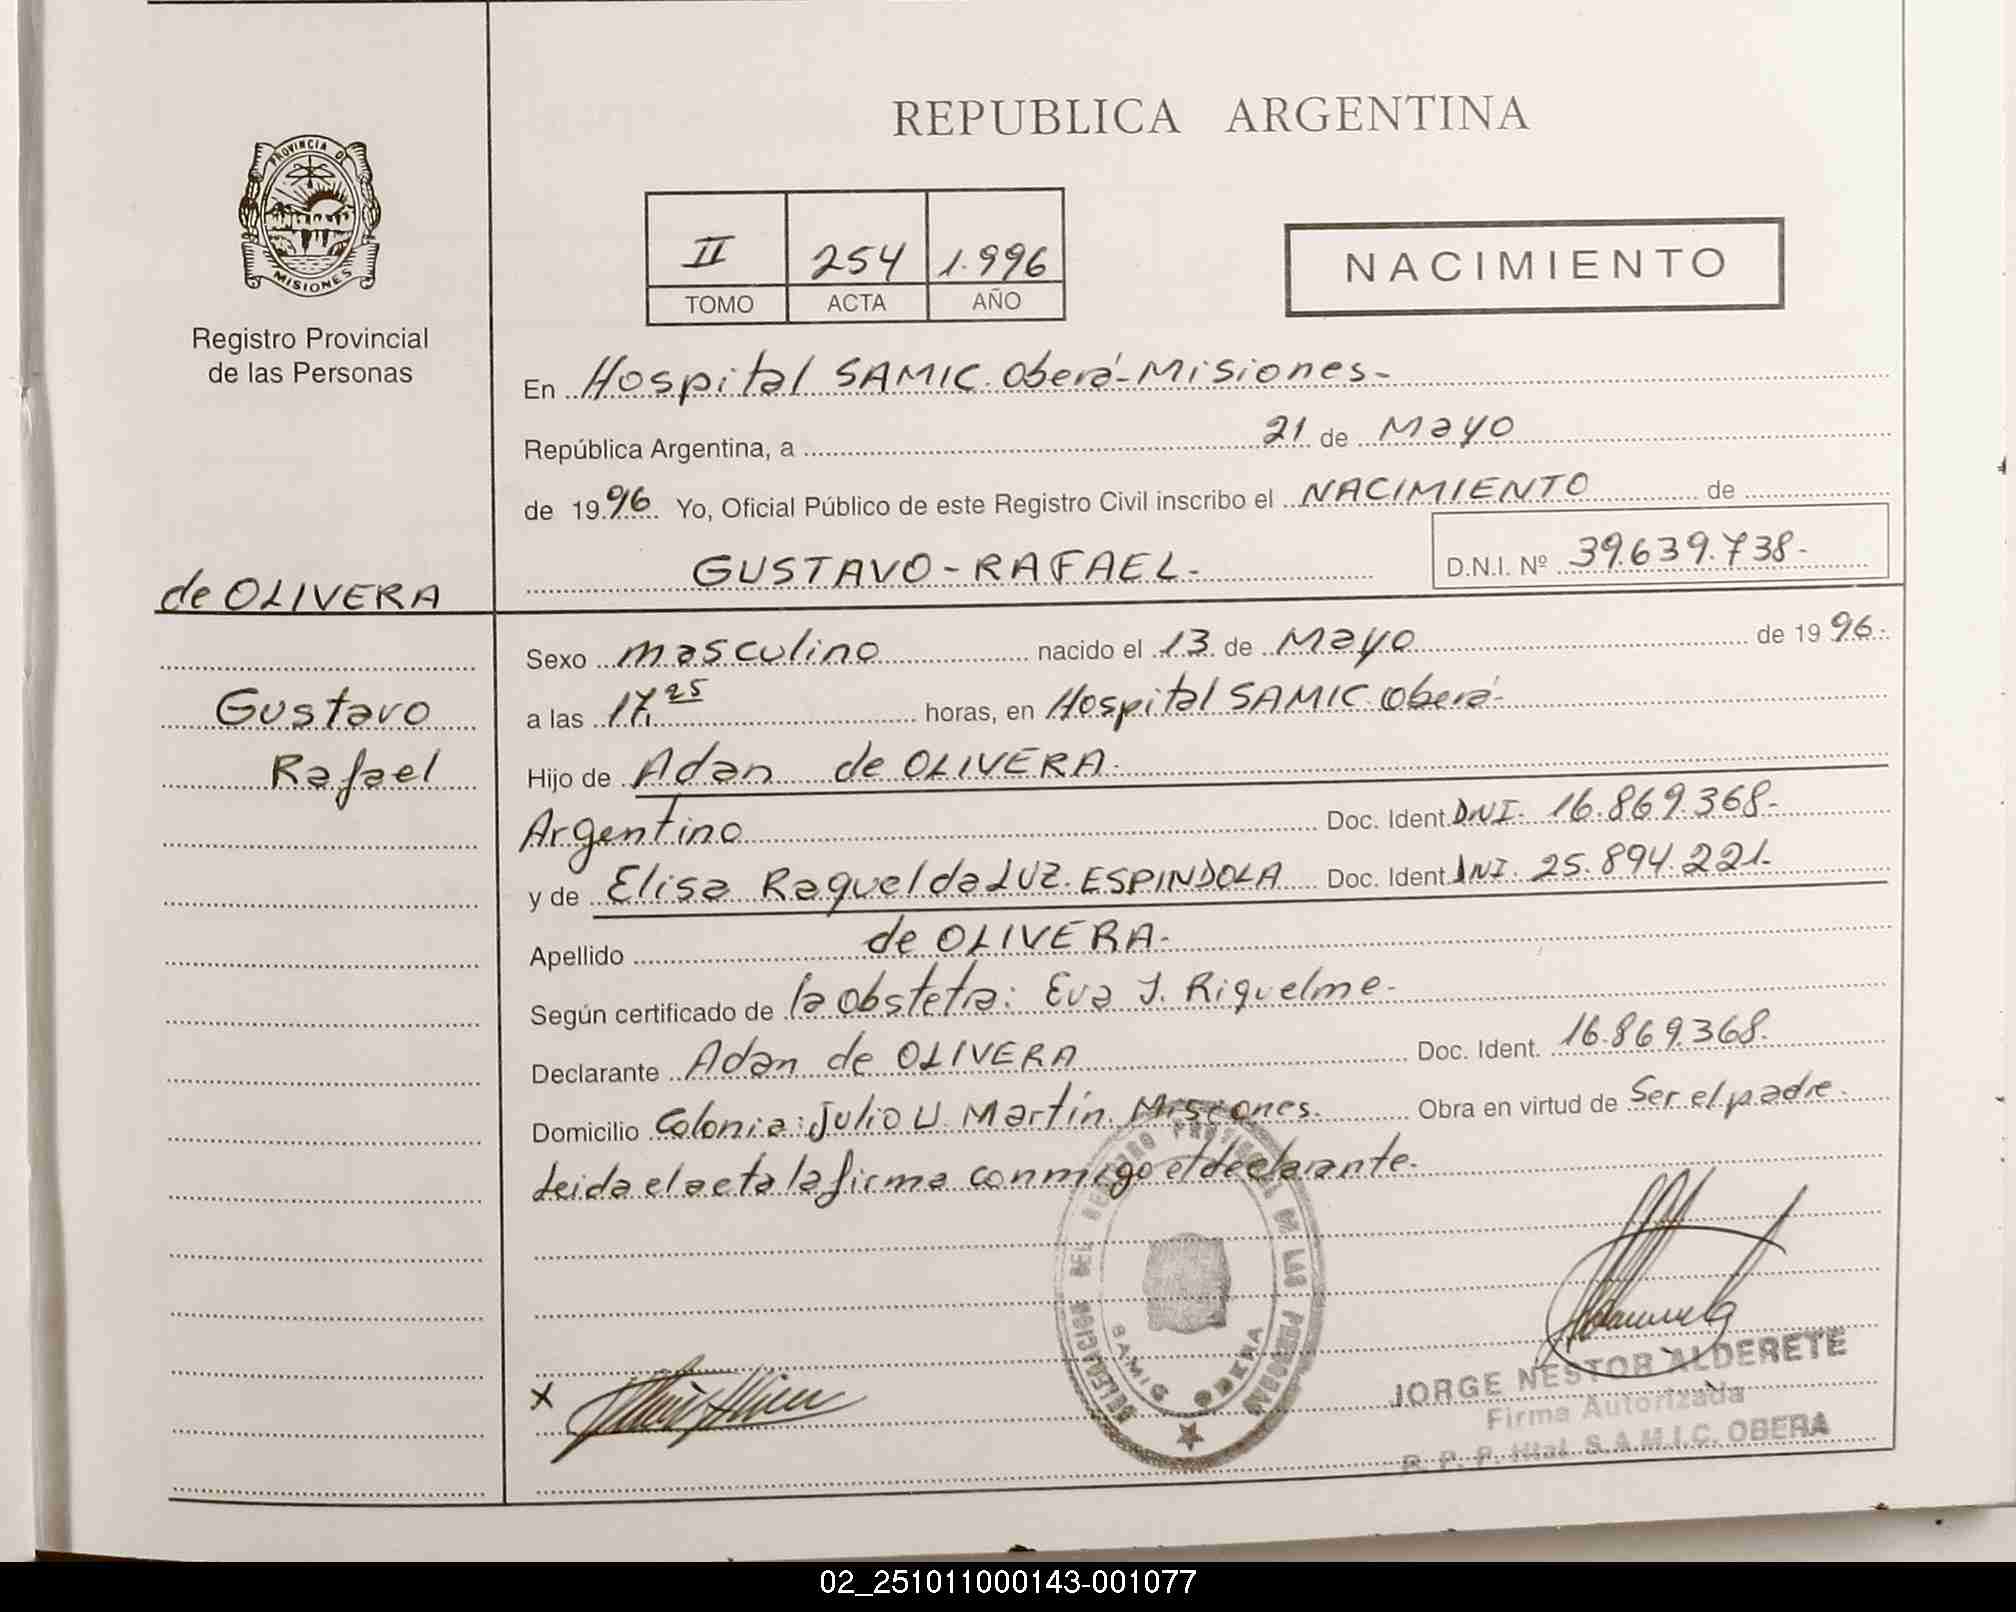 REPUBLICA ARGENTINA
PROVINCIA DE
MISIONES
Registro Provincial
de las Personas
II 254 1.996
TOMO ACTA AÑO
NACIMIENTO
En Hospital SAMIC. Oberá-Misiones-
República Argentina, a 21 de Mayo
de 1996 Yo, Oficial Público de este Registro Civil inscribo el NACIMIENTO de
GUSTAVO-RAFAEL-
D.N.I. Nº 39.639.738-
de OLIVERA
Gustavo
Rafael
Sexo masculino nacido el 13 de Mayo de 1996-
a las 17.25 horas, en Hospital SAMIC. Oberá-
Hijo de Adan de OLIVERA-
Argentino Doc. Ident. DNI- 16.869.368-
y de Elisa Raquel da LUZ. ESPINDOLA Doc. Ident. DNI. 25.894.221-
Apellido de OLIVERA-
Según certificado de la obstetra: Eva J. Riquelme-
Declarante Adan de OLIVERA Doc. Ident. 16.869.368.
Domicilio Colonia: Julio U. Martín. Misiones. Obra en virtud de Ser el padre-
Leida el acta la firma conmigo el declarante-
DELEGACION DEL REGISTRO PROVINCIAL DE LAS PERSONAS
SAMIC OBERA
X
JORGE NESTOR ALDERETE
Firma Autorizada
R. P. P. Htal. S.A.M.I.C. OBERA
02_251011000143-001077